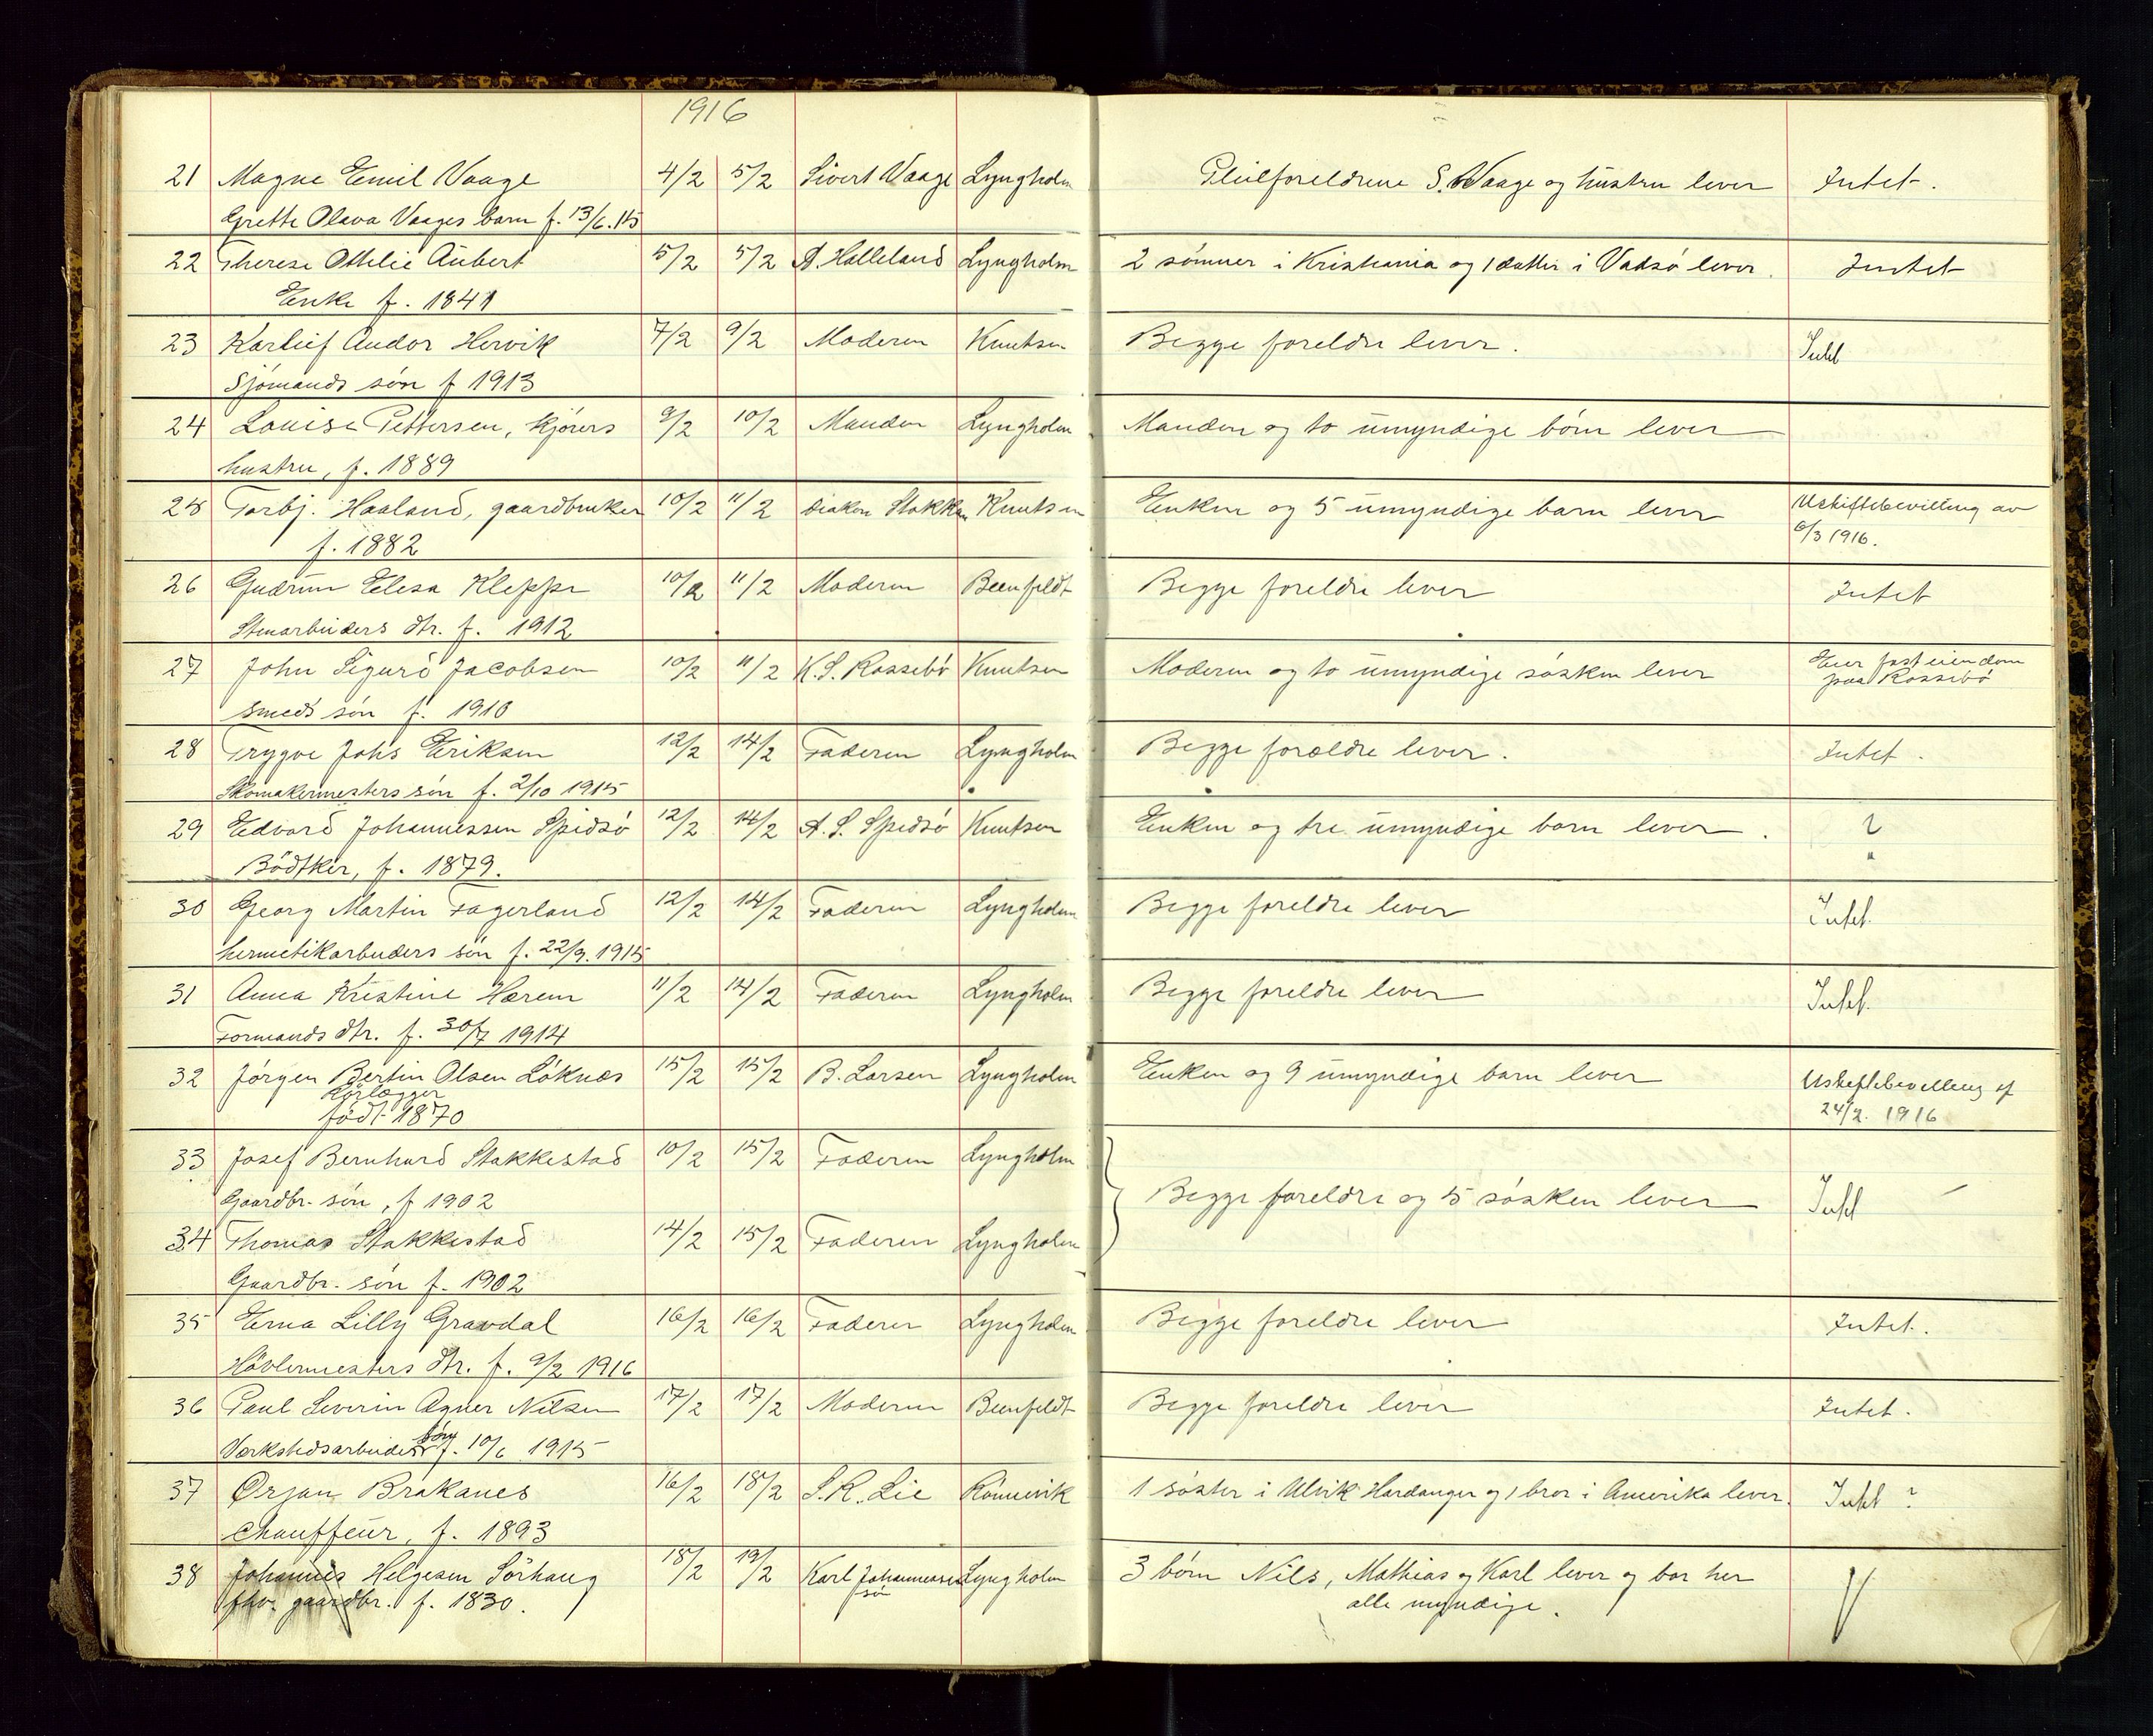 1916
21 Magne Emil Vaage 4/2 5/2 Sivert Vaage Lyngholm Pleieforeldrene S. Vaage og hustru lever Intet.
Grethe Olava Vaages barn f. 13/6.15
22 Therese Othilie Aubert 5/2 5/2 A. Halleland Lyngholm 2 sønner i Kristiania og 1 datter i Vadsø lever. Intet
Enke f. 1841
23 Karleif Andor Hervik 7/2 9/2 Moderen Knutsen Begge foreldre lever. Intet
Sjømands søn f 1913
24 Louise Pettersen, kjørers 9/2 10/2 Manden Lyngholm Manden og to umyndige børn lever
hustru, f. 1889
25 Torbj. Haaland, gaardbruker 10/2 11/2 diakon Stokka Knutsen Enken og 5 umyndige barn lever Uskiftebevilling av
f. 1882 6/3 1916.
26 Gudrun Elesa Kleppe 10/2 11/2 Moderen Beenfeldt Begge foreldre lever Intet
Stenarbeiders dtr. f. 1912
27 John Sigurd Jacobsen 10/2 11/2 K. S. Rossebø Knutsen Moderen og to umyndige søsken lever Eier fast eiendom
paa Rossebø
smeds søn f. 1910
28 Trygve Johs Eriksen 12/2 14/2 Faderen Lyngholm Begge forældre lever. Intet.
Skomakermesters søn f. 2/10 1915
29 Edvard Johannessen Spidsø 12/2 14/2 A. S. Spidsø Knutsen Enken og tre umyndige barn lever. ?
Bødtker, f. 1879.
30 Georg Martin Fagerland 12/2 14/2 Faderen Lyngholm Begge foreldre lever Intet.
hermetikarbeiders søn f. 22/9. 1915
31 Anna Kristine Hærem 11/2 14/2 Faderen Lyngholm Begge foreldre lever Intet.
Formands dtr. f. 30/7 1914
32 Jørgen Bertin Olsen Løknes 15/2 15/2 B. Larsen Lyngholm Enken og 9 umyndige barn lever Uskiftebevilling af
Rørlægger 24/2. 1916
født 1870
33 Josef Bernhard Stakkestad 10/2 15/2 Faderen Lyngholm
Gaardbr. søn, f 1902 Begge foreldre og 5 søsken lever Intet
34 Thomas Stakkestad 14/2 15/2 Faderen Lyngholm
Gaardbr. søn f. 1902
35 Erna Lilly Gravdal 16/2 16/2 Faderen Lyngholm Begge foreldre lever Intet.
Høvlermesters dtr. f. 9/2 1916
36 Paul Severin Agner Nilsen 17/2 17/2 Moderen Beenfeldt Begge foreldre lever Intet.
Verkstedsarbeiders søn f. 10/6 1915
37 Ørjan Brakanes 16/2 18/2 S. R. Lie Rønnevik 1 søster i Ulvik Hardanger og 1 bror i Amerika lever. Intet ?
Chauffeur, f. 1893
38 Johannes Helgesen Sørhaug 18/2 19/2 Karl Johannessen Lyngholm 3 børn Nils, Mathias og Karl lever og bor her
fhv. gaardbr. f. 1830. søn alle myndige.